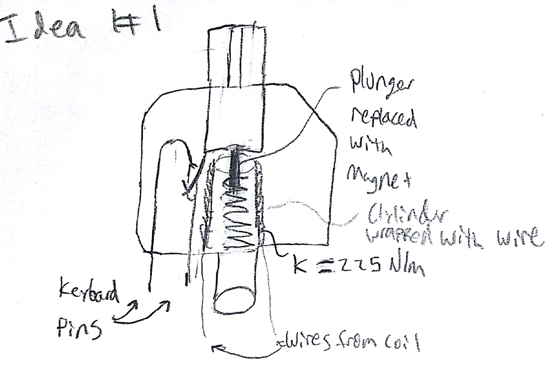 Idea #1
Plunger
replaced
with
Magnet
Cylinder
wrapped with wire
k = 225 N/m
Keyboard
Pins
wires from coil